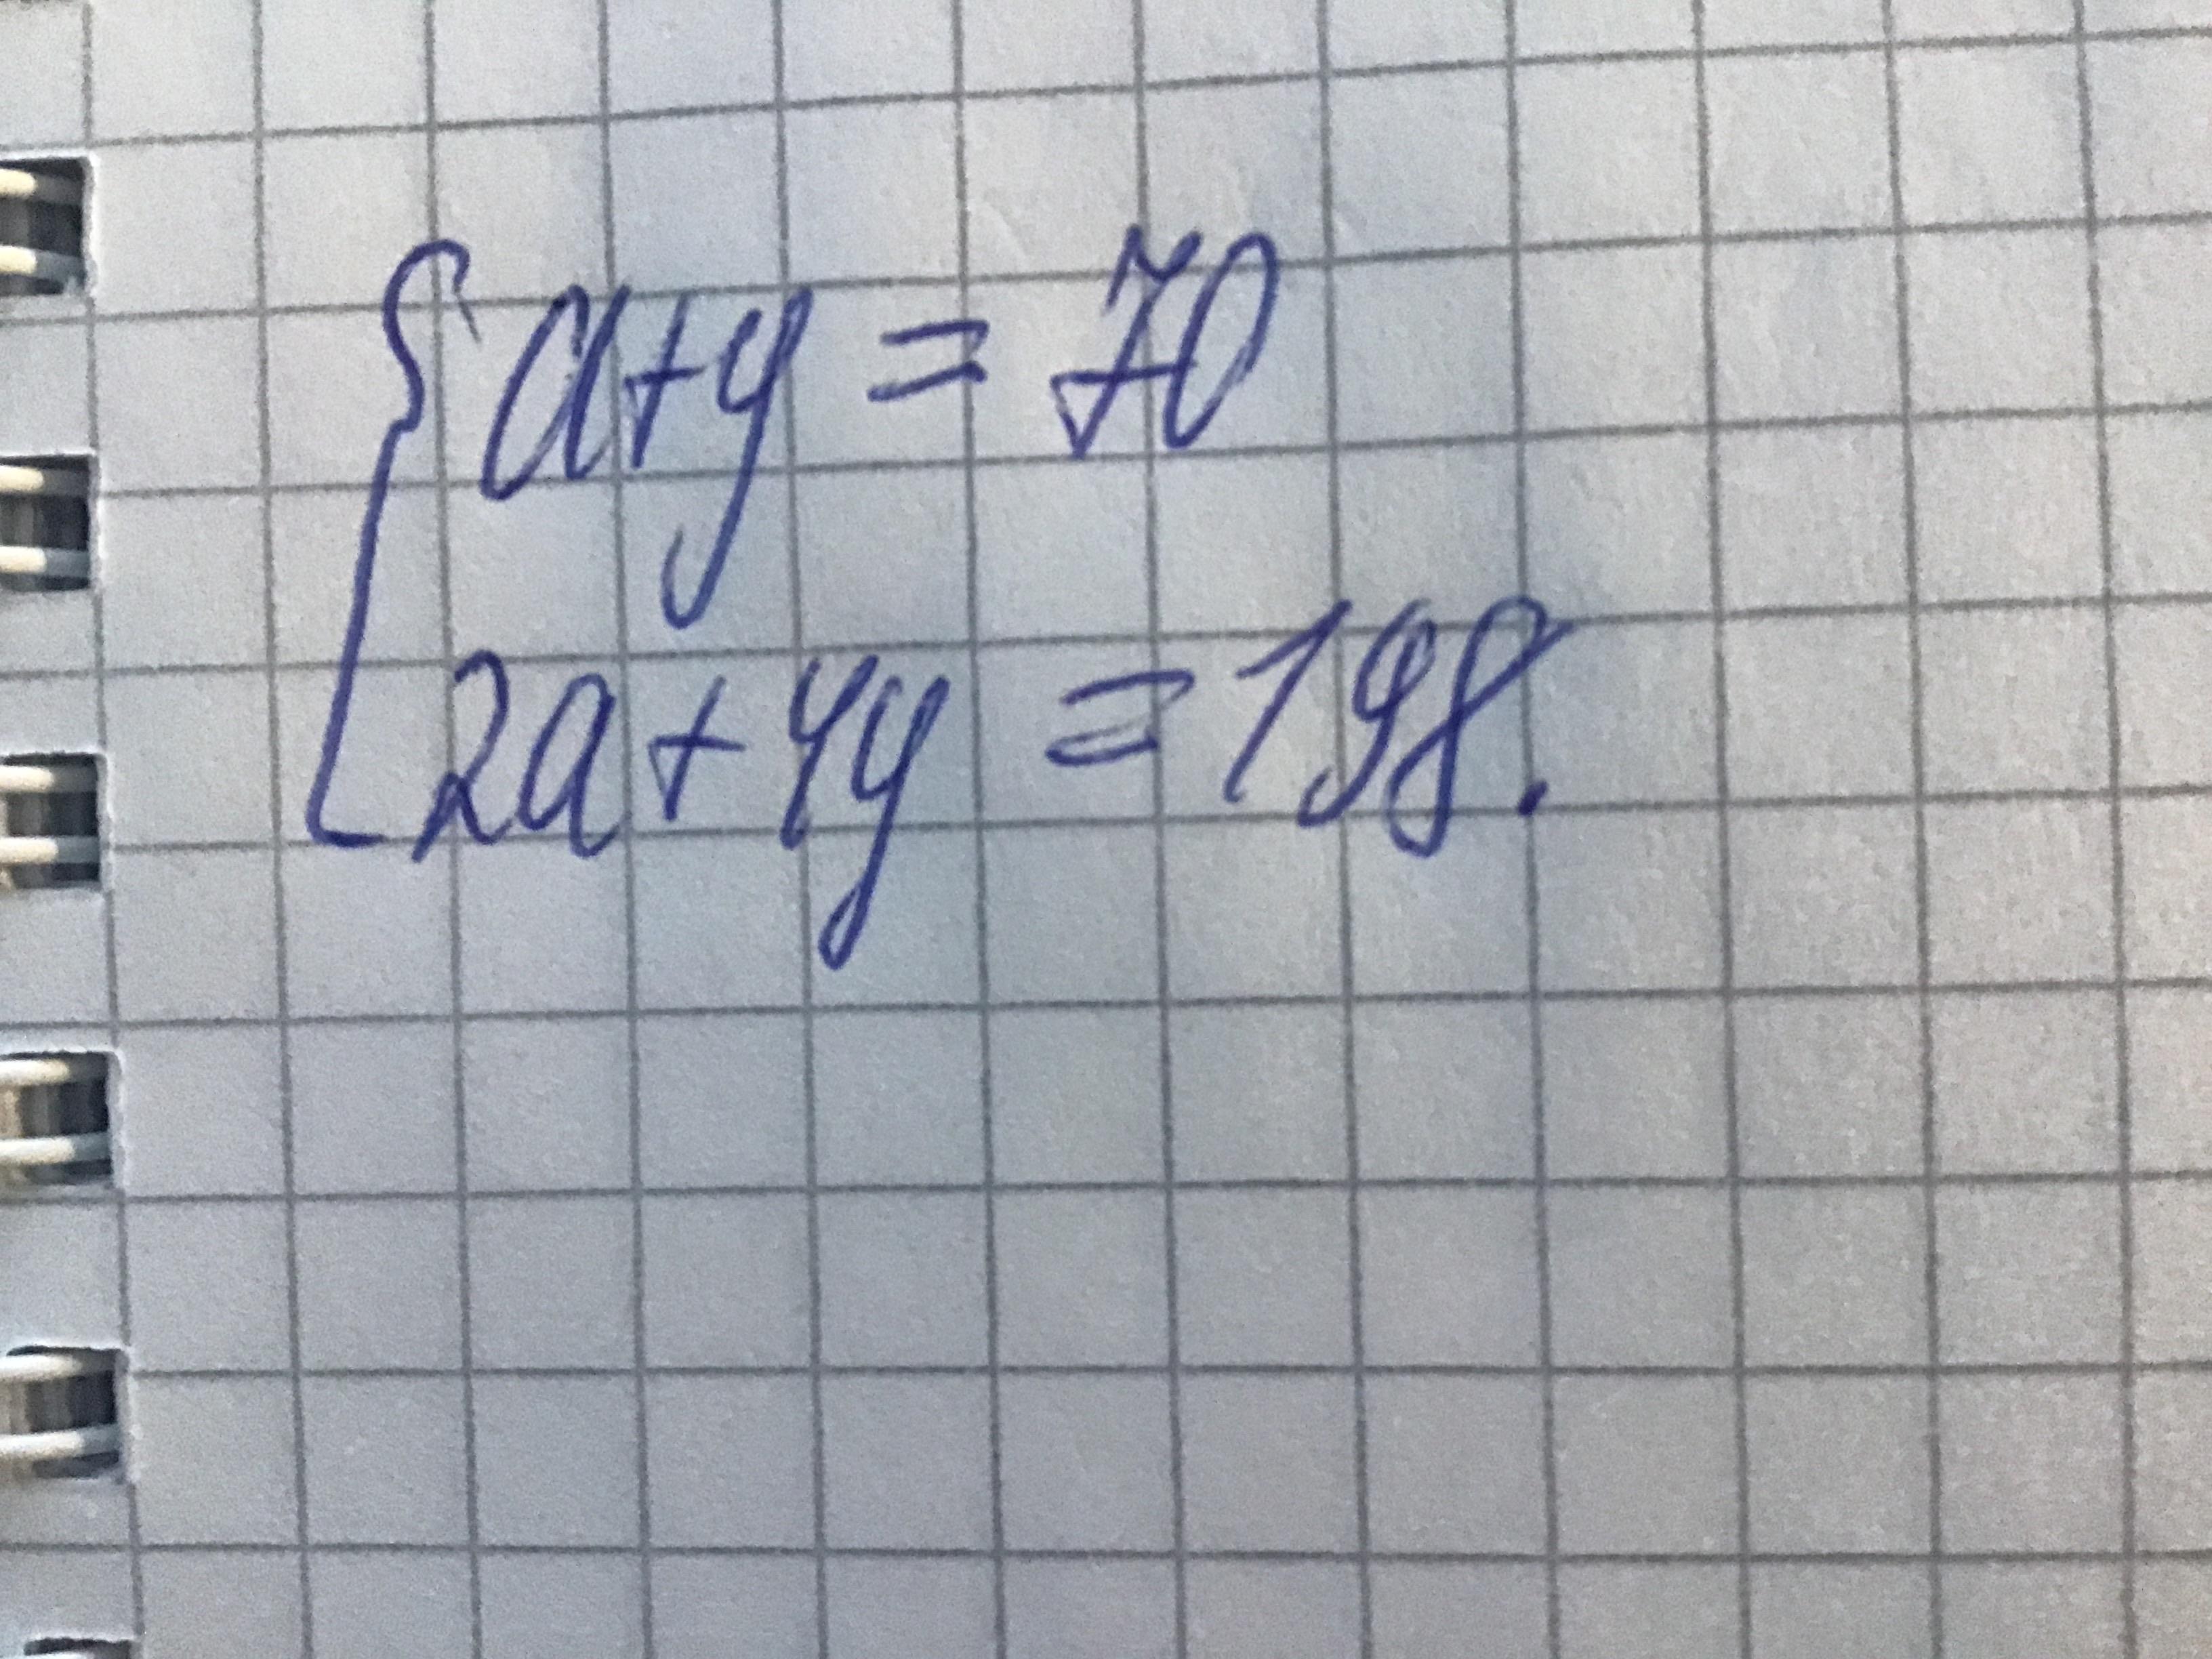 a+y = 70
2a+4y = 198.